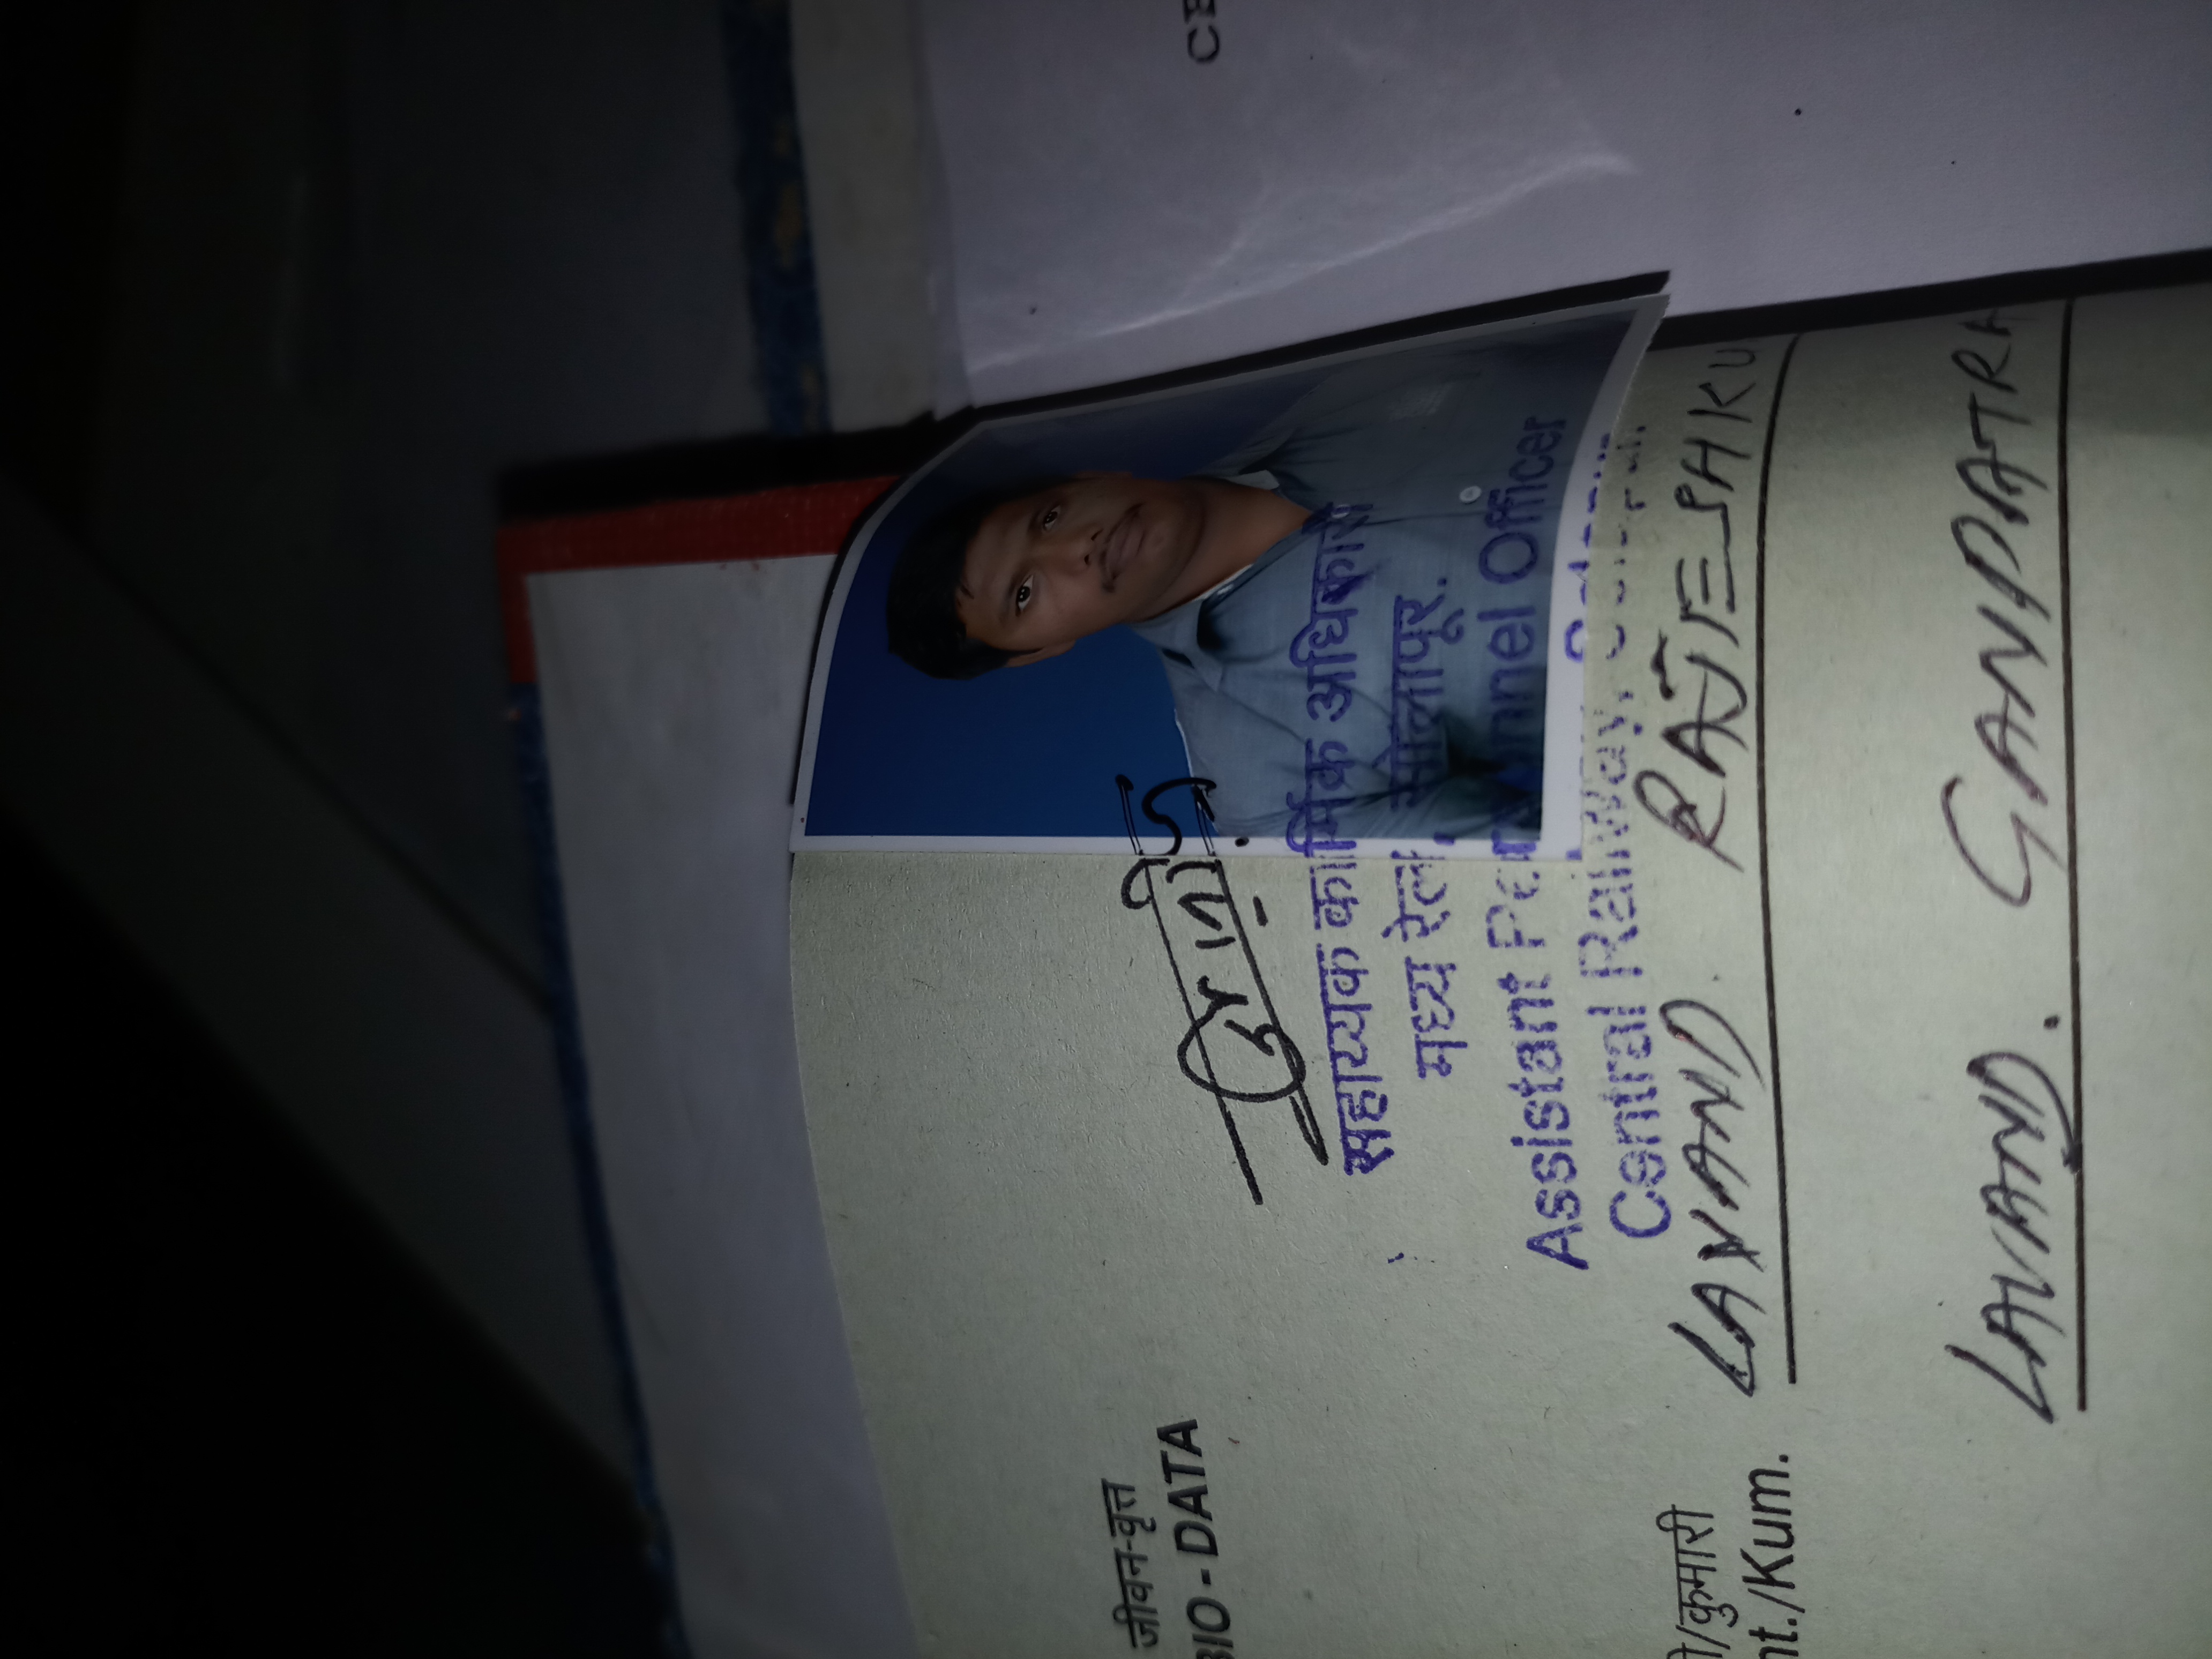 जीवन-वृत्त
BIO - DATA
सहाय्यक कार्मिक अधिकारी
मध्य रेल, सोलापूर.
Assistant Personnel Officer
Central Railway, Solapur.
/कुमारी
LAVAND. RAJESHKU
/Kum.
LAVAND. GANPATRA
CE